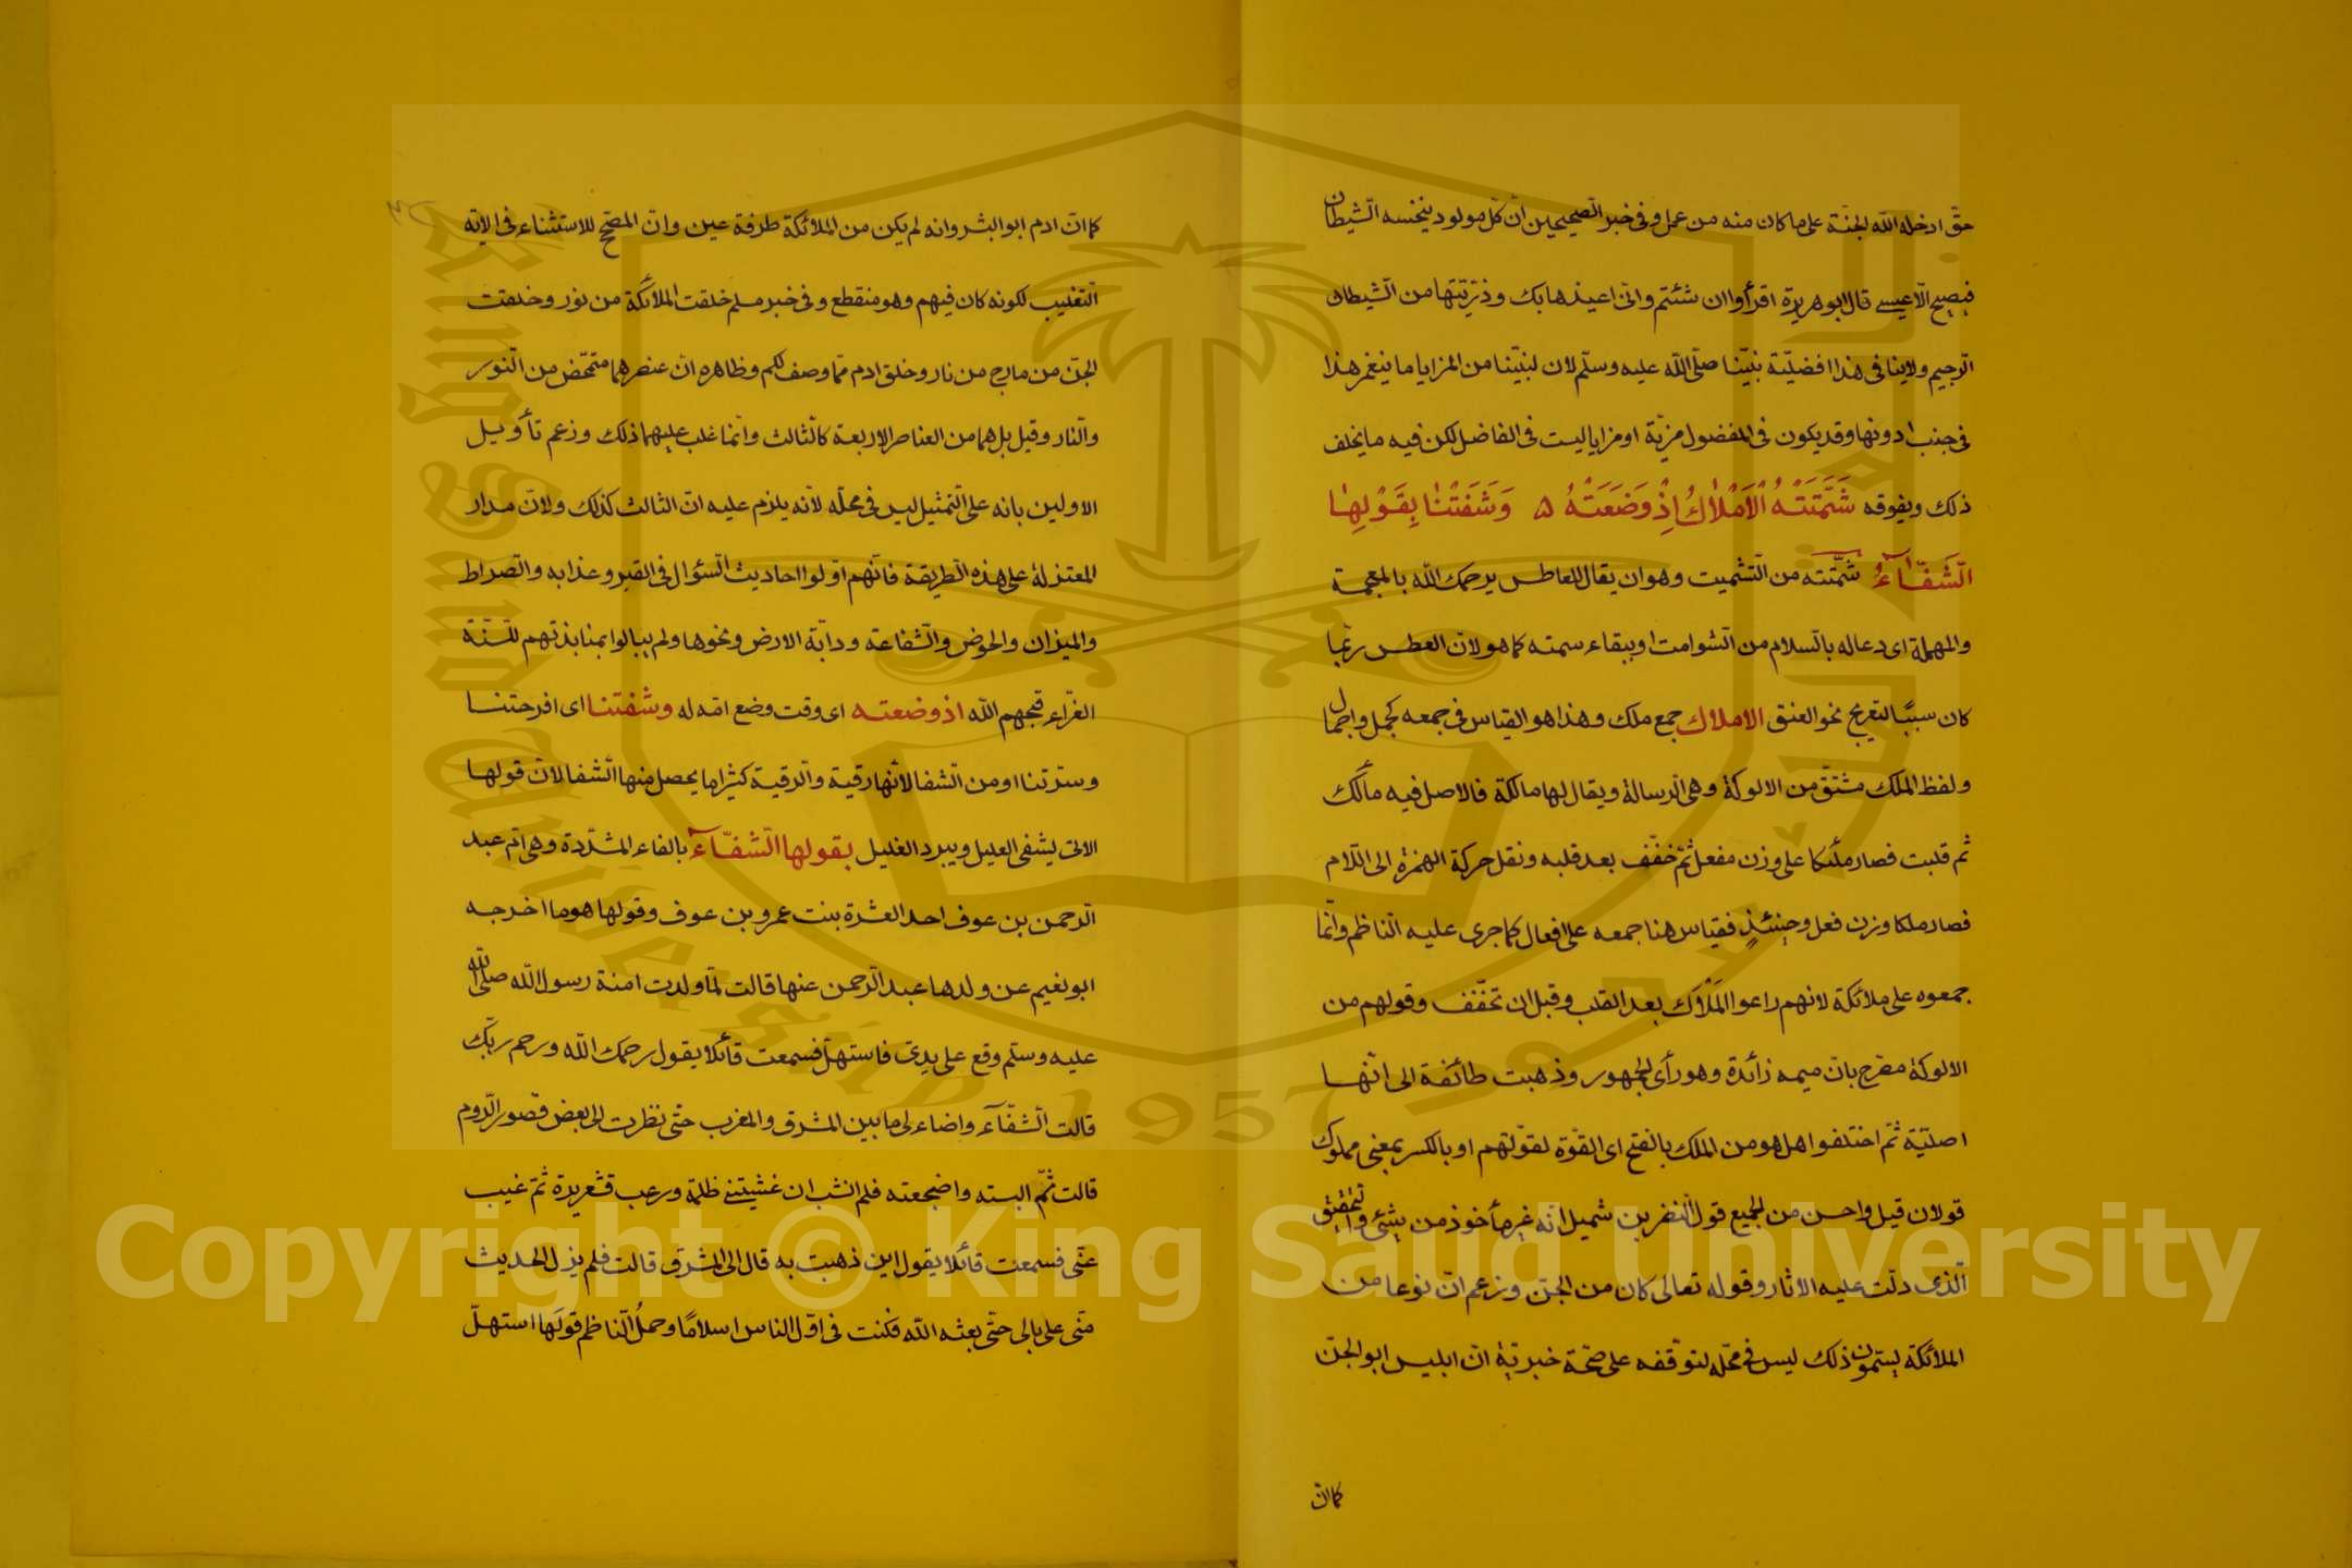 حق ادخله الله الجنة على ما كان منه من عمل وفى خبر الصحيحين ان كل مولود ينخسه الشيطان
فيصيح الا عيسى قال ابو هريرة اقرأوا ان شئتم وانى اعيذها بك وذريتها من الشيطان
الرجيم ولاينافى هذا افضلية نبينا صلى الله عليه وسلم لان لنبينا من المزايا ما ينغمر هذا
فى جنب ادونها وقد يكون فى المفضول مزية او مزايا ليست فى الفاضل لكن فيه ما يخلف
ذلك ويفوقه شَمَّتَتْهُ الْاَمْلَاكُ اِذْ وَضَعَتْهُ ۵ وَشَفَتْنَا بِقَوْلِهَا
الشَّفَّآءُ شمّتته من التشميت وهو ان يقال للعاطس يرحمك الله بالمعجمة
والمهملة اى دعا له بالسلام من الشوامت او ببقاء سمته كما هو لان العطس ربما
كان سببًا لتعريج نحو العنق الاملاك جمع ملك وهذا هو القياس فى جمعه كجمل واجمال
ولفظ الملك مشتق من الالوكة وهى الرسالة ويقال لها مالكة فالاصل فيه مألك
ثم قلبت فصار ملئكا على وزن مفعل ثم خفف بعد قلبه ونقل حركة الهمزة الى اللام
فصار ملكا وزن فعل وحينئذ فقياس هنا جمعه على افعال كما جرى عليه الناظم وانما
جمعوه على ملائكة لانهم راعوا المَلْأَك بعد القلب وقبل ان تخفف وقولهم من
الالوكة مصرح بان ميمه زائدة وهو رأى الجمهور وذهبت طائفة الى انها
اصلية ثم اختلفوا هل هو من الملك بالفتح اى القوة لقوتهم او بالكسر بمعنى مملوك
قولان قيل واحسن من الجميع قول النضر بن شميل انه غير مأخوذ من شئ والتحقيق
الذى دلت عليه الاثار وقوله تعالى كان من الجن وزعم ان نوعا من
الملائكة يسمون ذلك ليس فى محله لتوقفه على صحة خبر به ان ابليس ابو الجن
كما ان
كما ان ادم ابو البشر وانه لم يكن من الملائكة طرفة عين وان المصحح للاستثناء فى الاية
التغليب لكونه كان فيهم وهو منقطع وفى خبر مسلم خلقت الملائكة من نور وخلقت
الجن من مارج من نار وخلق ادم مما وصف لكم وظاهره ان عنصرهما متمحض من النور
والنار وقيل بل هما من العناصر الاربعة كالثالث وانما غلب عليهما ذلك وزعم تأويل
الاولين بانه على التمثيل ليس فى محله لانه يلزم عليه ان الثالث كذلك ولان مدار
المعتزلة على هذه الطريقة فانهم اولوا احاديث السؤال فى القبر وعذابه والصراط
والميزان والحوض والشفاعة ودابة الارض ونحوها ولم يبالوا بمنابذتهم للسنة
الغراء قبحهم الله اذ وضعته اى وقت وضع امه له وشفتنا اى افرحتنا
وسرتنا او من الشفا لانها رقية والرقية كثيرا ما يحصل منها الشفا لان قولها
الاتى يشفى العليل ويبرد الغليل بقولها الشفّآء بالفاء المشددة وهى ام عبد
الرحمن بن عوف احد العشرة بنت عمرو بن عوف وقولها هو ما اخرجه
ابو نعيم عن ولدها عبد الرحمن عنها قالت لما ولدت امنة رسول الله صلى الله
عليه وسلم وقع على يدى فاستهل فسمعت قائلا يقول رحمك الله ورحم ربك
قالت الشفآء واضاء لى ما بين المشرق والمغرب حتى نظرت الى بعض قصور الروم
قالت ثم البسته واضجعته فلم انشب ان غشيتنى ظلمة ورعب قشعريرة ثم غيب
عنى فسمعت قائلا يقول اين ذهبت به قال الى المشرق قالت فلم يزل الحديث
منى على بالى حتى بعثه الله فكنت فى اول الناس اسلامًا وحملُ الناظم قولَها استهل
Copyright © King Saud University
King Saud University
1957